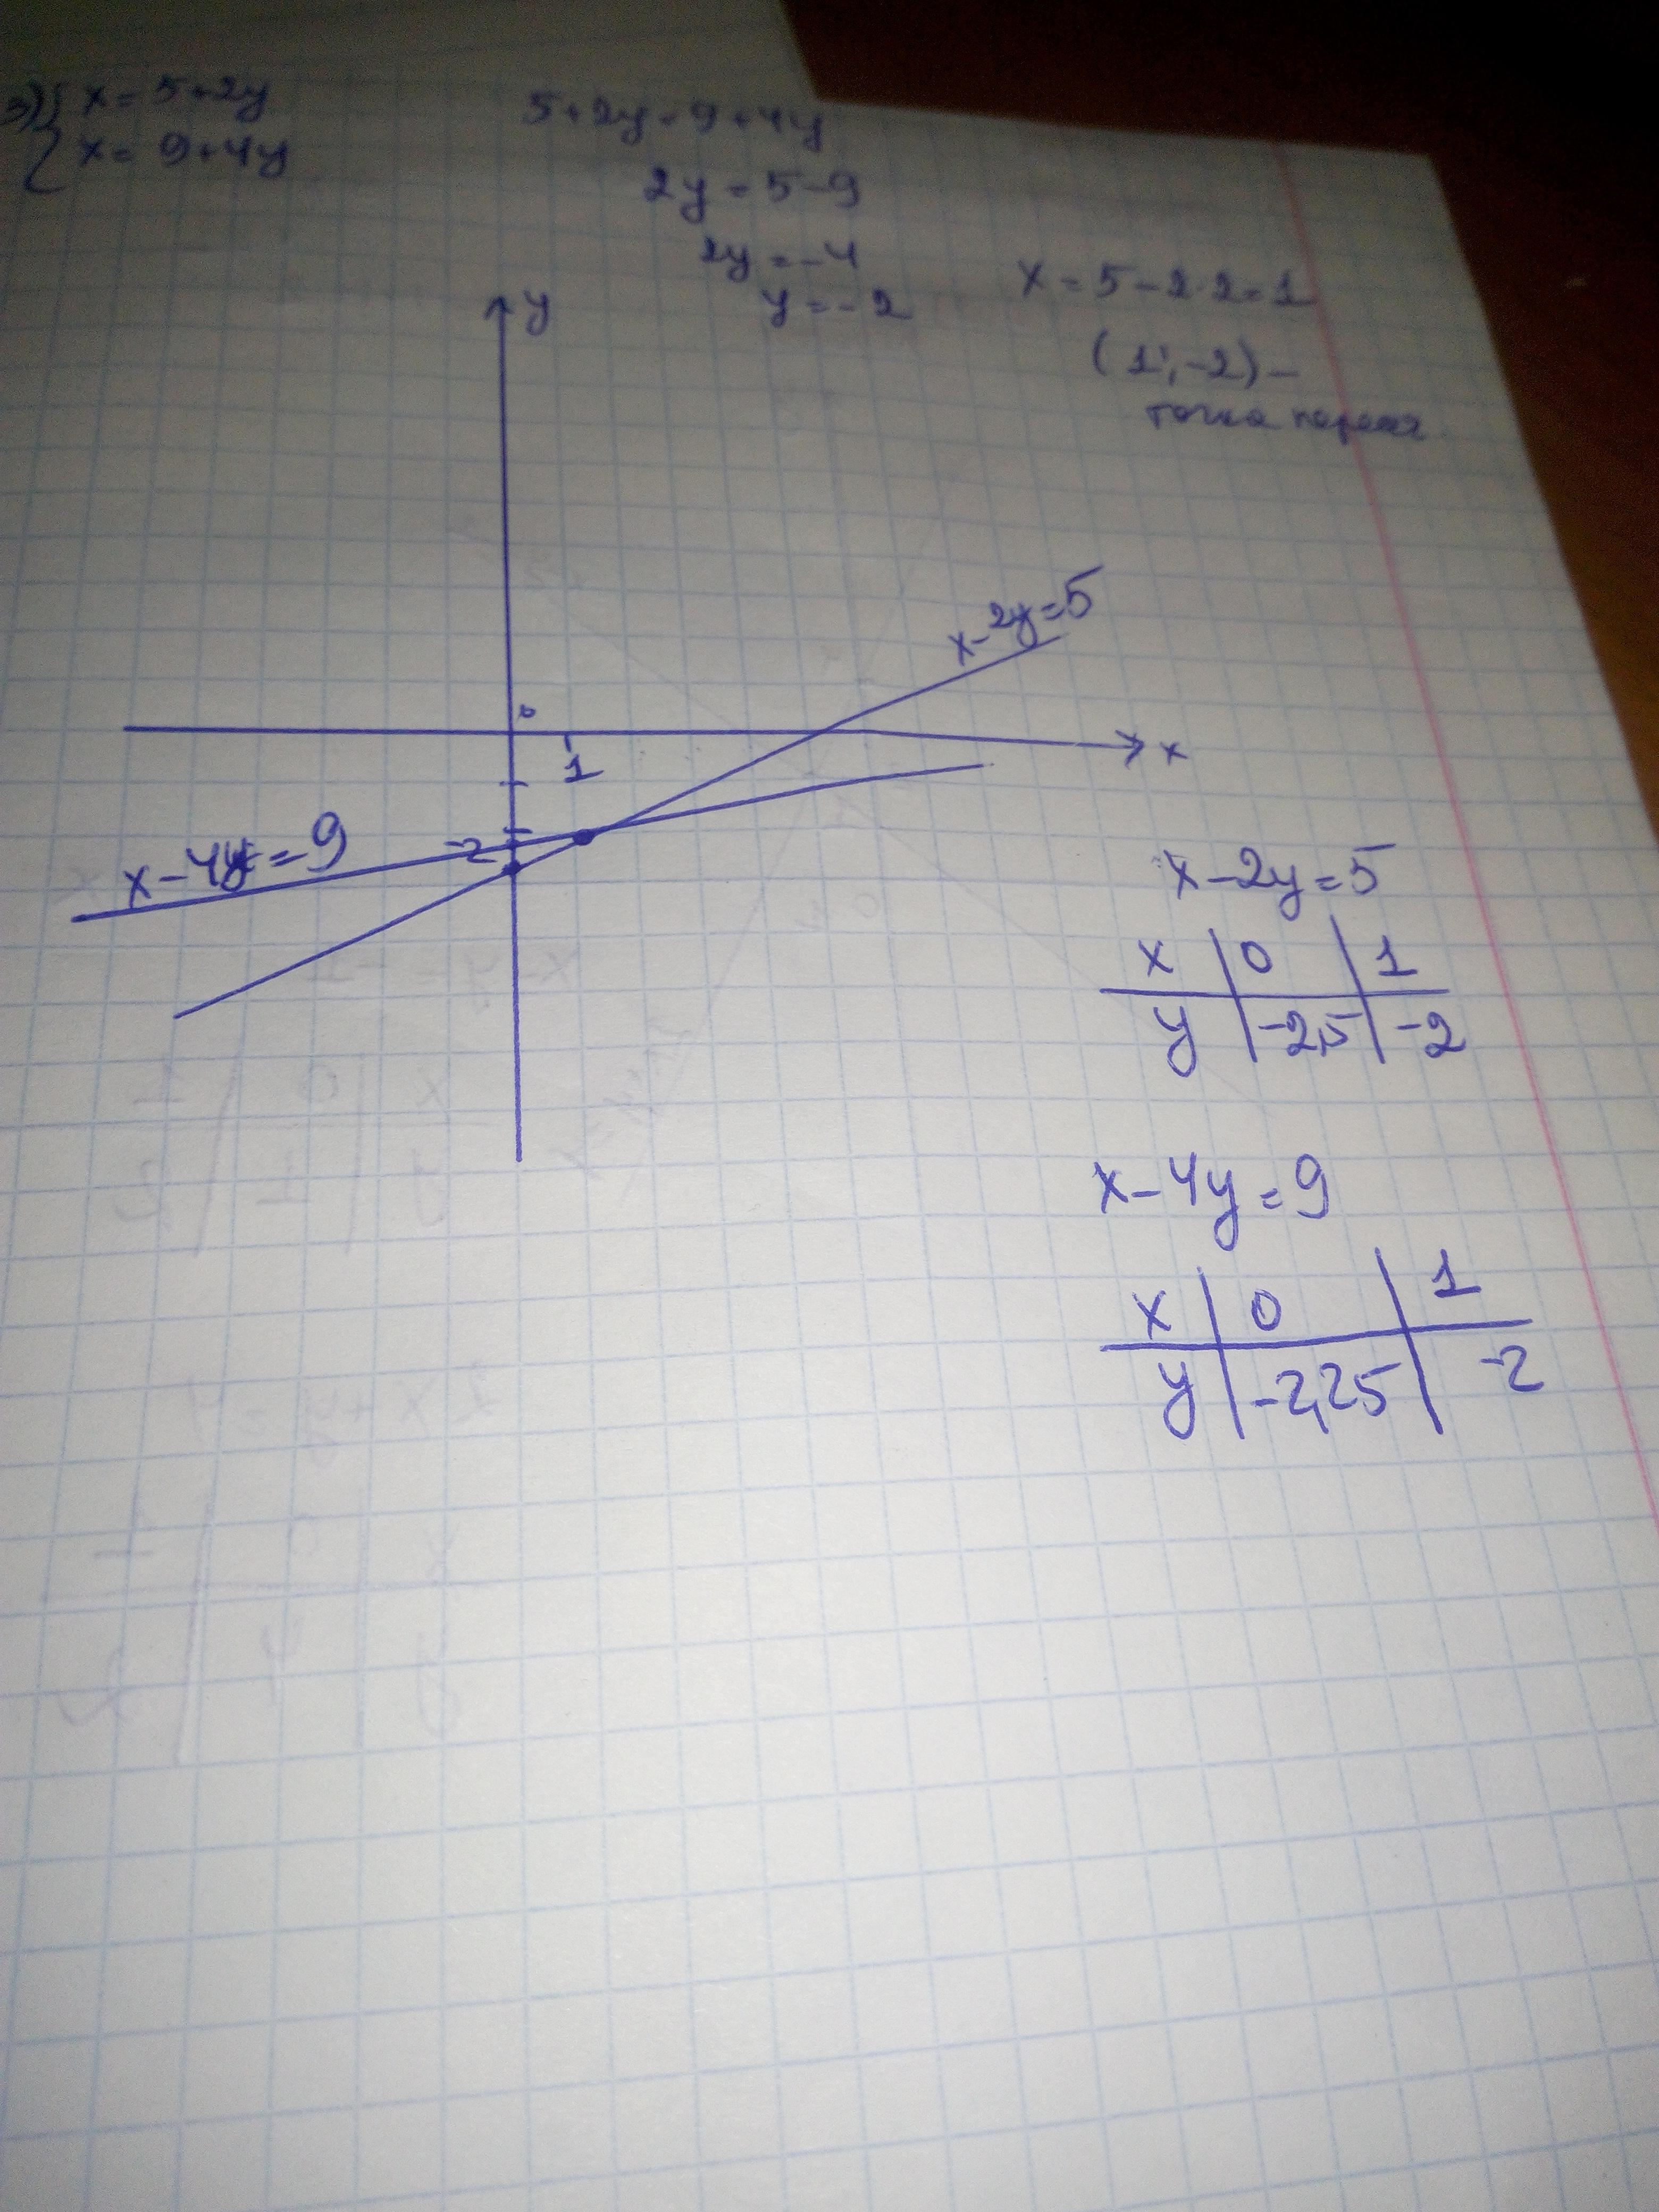 3) { x = 5+2y
x = 9+4y
5+2y=9+4y
2y = 5-9
2y = -4
y = -2
x = 5-2·2=1
(1;-2) -
точка перес
y
x-2y=5
0
x
1
-2
x-4y=9
x-2y=5
x | 0 | 1
y | -2,5 | -2
x-4y=9
x | 0 | 1
y | -2,25 | -2